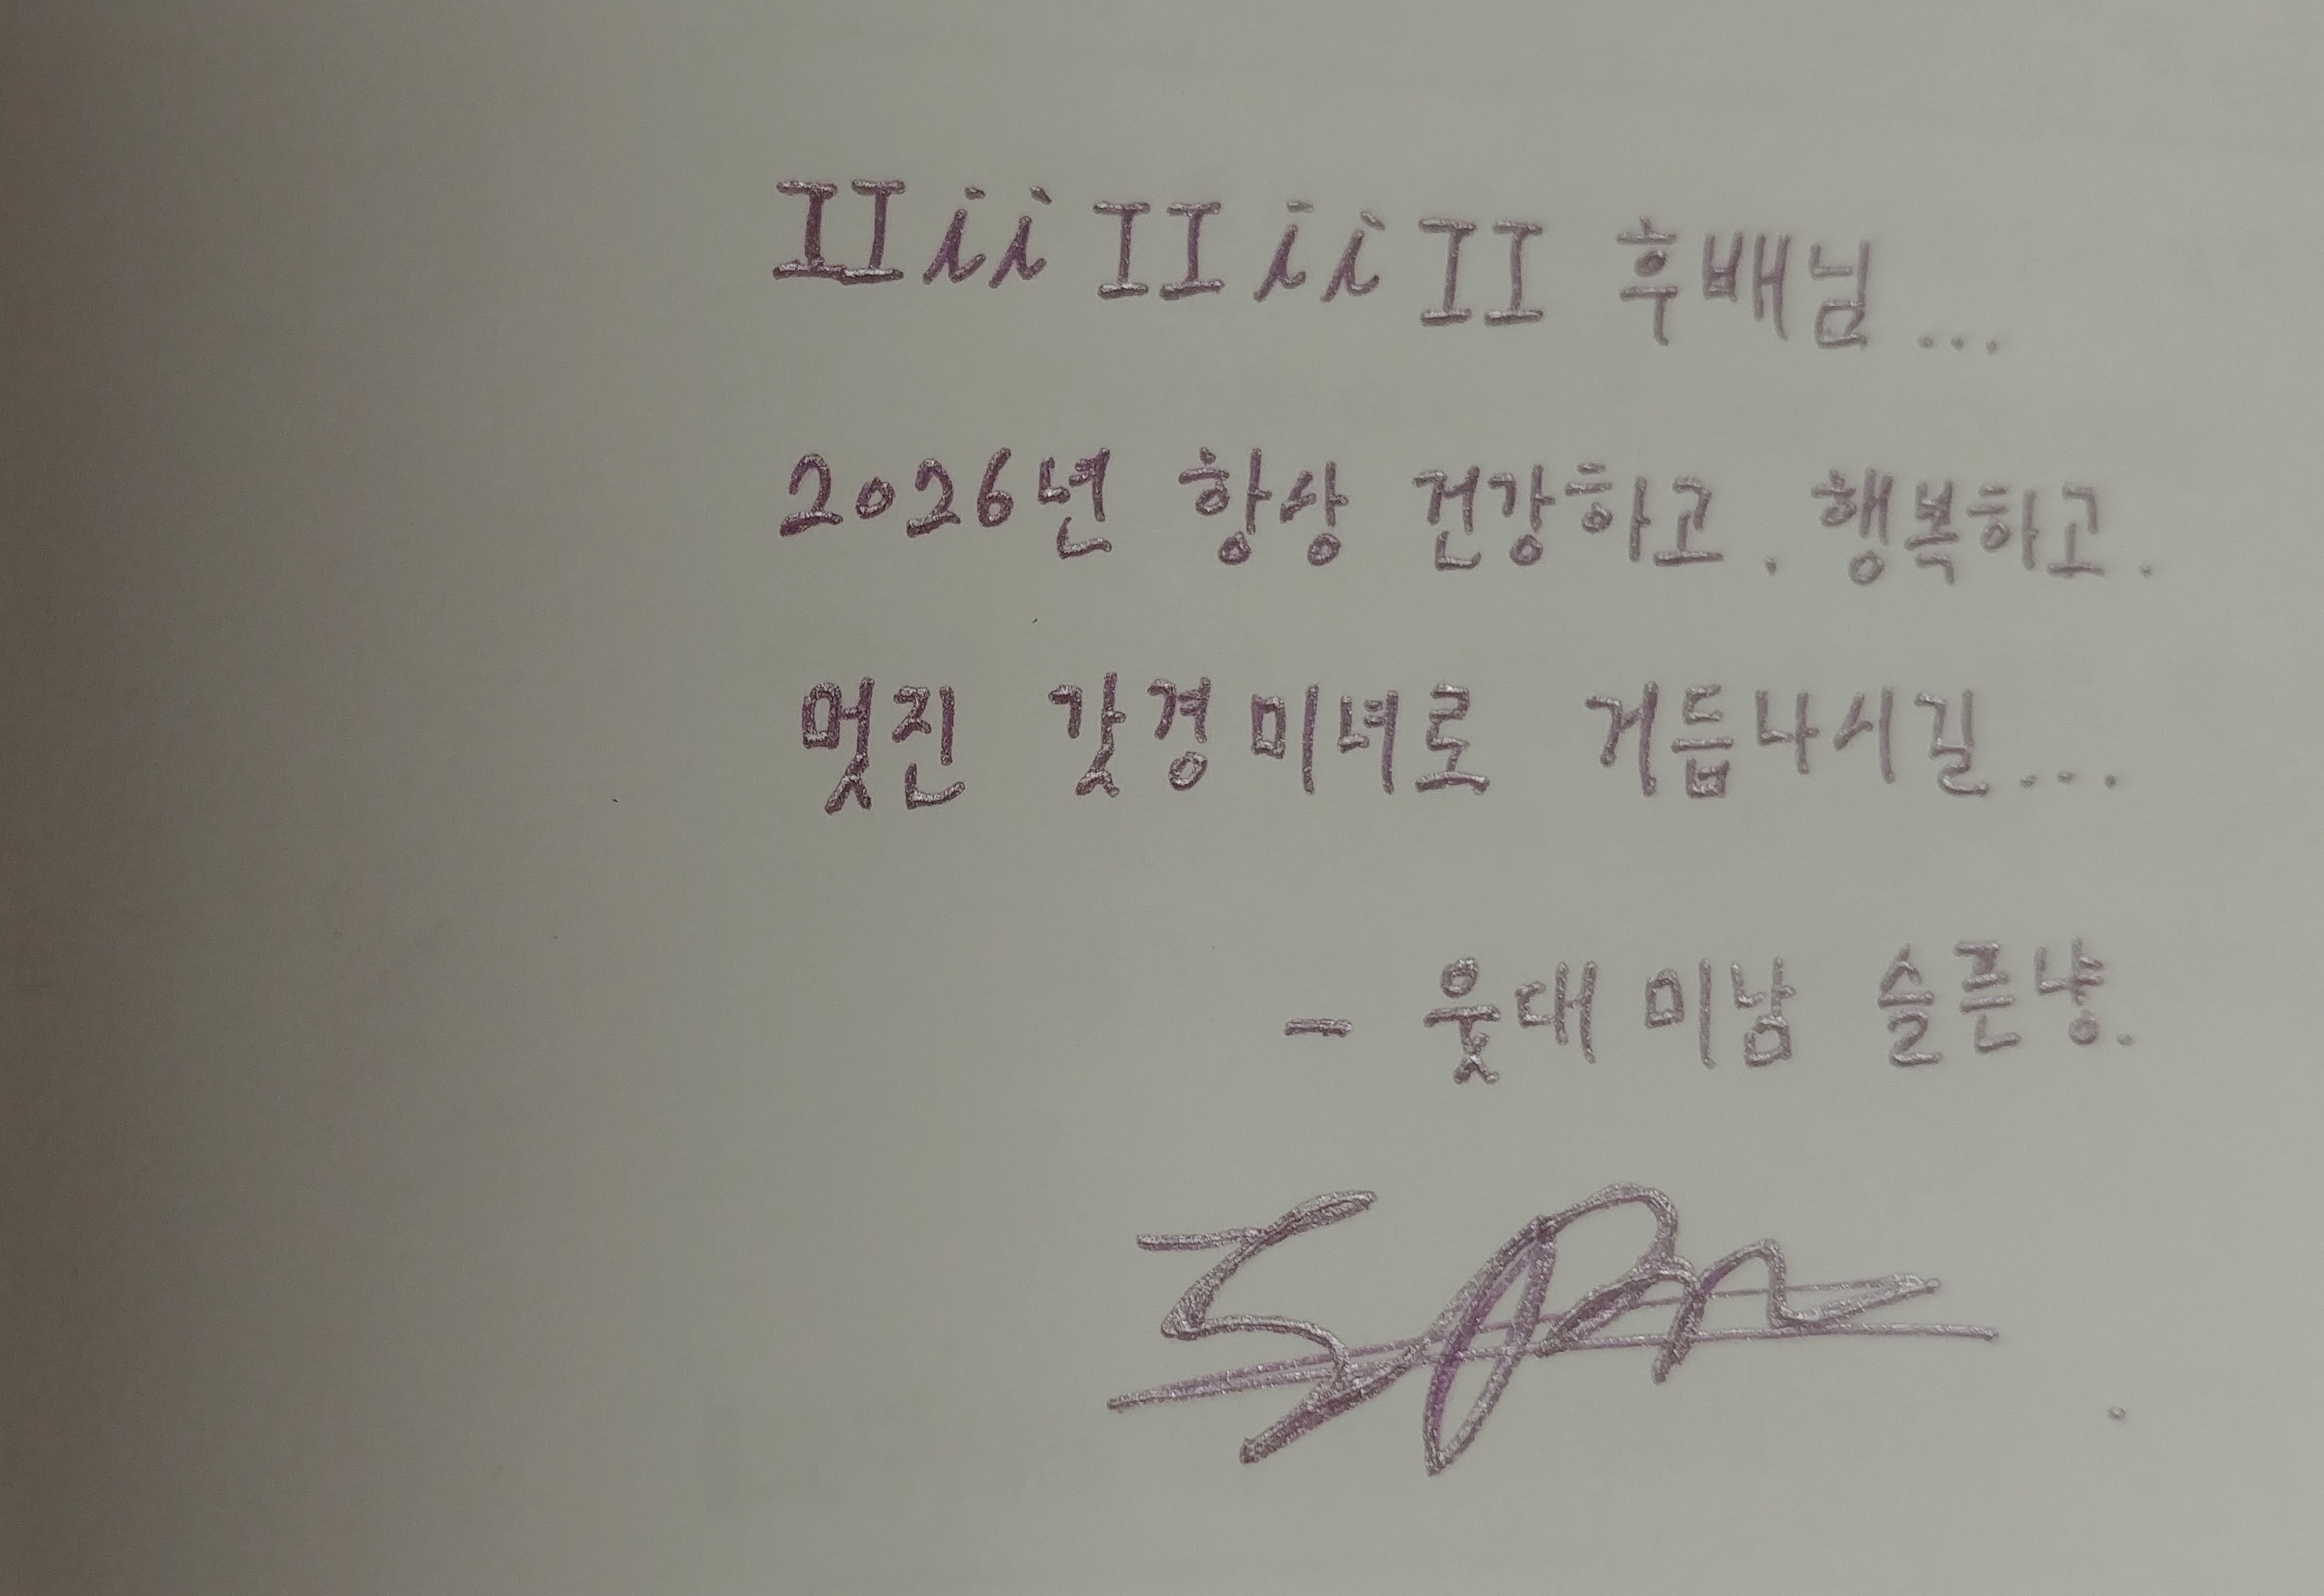 IIiiIIiiII 후배님...
2026년 항상 건강하고. 행복하고.
멋진 갓경미녀로 거듭나시길...
- 웃대 미남 슬른냥.